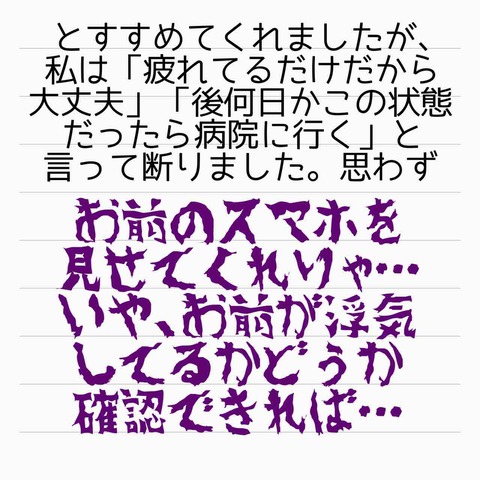 とすすめてくれましたが、
私は「疲れてるだけだから
大丈夫」「後何日かこの状態
だったら病院に行く」と
言って断りました。思わず
お前のスマホを
見せてくれりゃ…
いや、お前が浮気
してるかどうか
確認できれば…